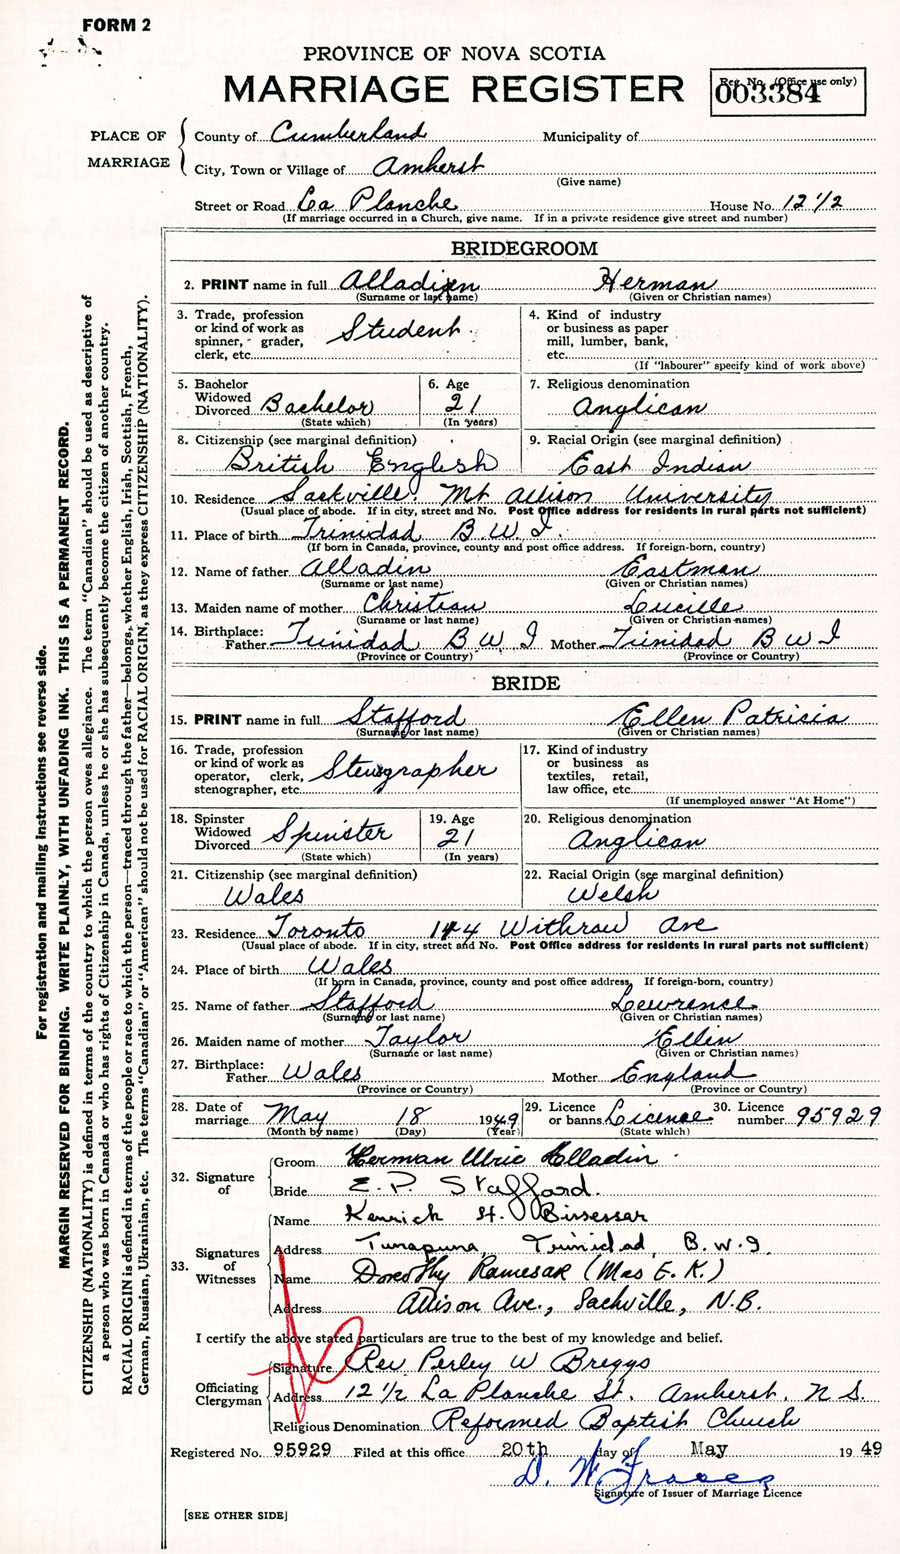 FORM 2
PROVINCE OF NOVA SCOTIA
MARRIAGE REGISTER
Reg. No. (Office use only)
003384
PLACE OF MARRIAGE
County of Cumberland Municipality of
City, Town or Village of Amherst
(Give name)
Street or Road La Planche House No. 12 1/2
(If marriage occurred in a Church, give name. If in a private residence give street and number)
BRIDEGROOM
2. PRINT name in full Alladin Herman
(Surname or last name) (Given or Christian names)
3. Trade, profession or kind of work as spinner, grader, clerk, etc. Student
4. Kind of industry or business as paper mill, lumber, bank, etc.
(If "labourer" specify kind of work above)
5. Bachelor Widowed Divorced Bachelor
(State which)
6. Age 21
(In years)
7. Religious denomination
Anglican
8. Citizenship (see marginal definition)
British English
9. Racial Origin (see marginal definition)
East Indian
10. Residence Sackville Mt Allison University
(Usual place of abode. If in city, street and No. Post Office address for residents in rural parts not sufficient)
11. Place of birth Trinidad B. W. I.
(If born in Canada, province, county and post office address. If foreign-born, country)
12. Name of father Alladin Eastman
(Surname or last name) (Given or Christian names)
13. Maiden name of mother Christian Lucille
(Surname or last name) (Given or Christian names)
14. Birthplace: Father Trinidad B W I Mother Trinidad B W I
(Province or Country) (Province or Country)
BRIDE
15. PRINT name in full Stafford Ellen Patricia
(Surname or last name) (Given or Christian names)
16. Trade, profession or kind of work as operator, clerk, stenographer, etc. Stenographer
17. Kind of industry or business as textiles, retail, law office, etc.
(If unemployed answer "At Home")
18. Spinster Widowed Divorced Spinister
(State which)
19. Age 21
(In years)
20. Religious denomination
Anglican
21. Citizenship (see marginal definition)
Wales
22. Racial Origin (see marginal definition)
Welsh
23. Residence Toronto 144 Withrow Ave
(Usual place of abode. If in city, street and No. Post Office address for residents in rural parts not sufficient)
24. Place of birth Wales
(If born in Canada, province, county and post office address. If foreign-born, country)
25. Name of father Stafford Lewrence
(Surname or last name) (Given or Christian names)
26. Maiden name of mother Taylor Ellin
(Surname or last name) (Given or Christian names)
27. Birthplace: Father Wales Mother England
(Province or Country) (Province or Country)
28. Date of marriage May 18 1949
(Month by name) (Day) (Year)
29. Licence or banns License
(State which)
30. Licence number 95929
32. Signature of
Groom Herman Ulric Alladin
Bride E. P. Stafford.
33. Signatures of Witnesses
Name Kenrick St. Bissessar
Address Tunapuna, Trinidad, B.W.I.
Name Dorothy Ramesar (Mrs E. K.)
Address Allison Ave., Sackville, N.B.
I certify the above stated particulars are true to the best of my knowledge and belief.
Officiating Clergyman
Signature Rev Perley W Briggs
Address 12 1/2 La Planche St. Amherst. N S.
Religious Denomination Reformed Baptist Church
Registered No. 95929 Filed at this office 20th day of May 19 49
D. W.
Signature of Issuer of Marriage Licence
[SEE OTHER SIDE]
For registration and mailing instructions see reverse side.
MARGIN RESERVED FOR BINDING. WRITE PLAINLY, WITH UNFADING INK. THIS IS A PERMANENT RECORD.
CITIZENSHIP (NATIONALITY) is defined in terms of the country to which the person owes allegiance. The term "Canadian" should be used as descriptive of
a person who was born in Canada or who has rights of Citizenship in Canada, unless he or she has subsequently become the citizen of another country.
RACIAL ORIGIN is defined in terms of the people or race to which the person—traced through the father—belongs, whether English, Irish, Scottish, French,
German, Russian, Ukrainian, etc. The terms "Canadian" or "American" should not be used for RACIAL ORIGIN, as they express CITIZENSHIP (NATIONALITY).